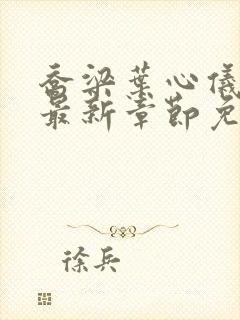 乔梁叶心仪
最新章节免
徐兵